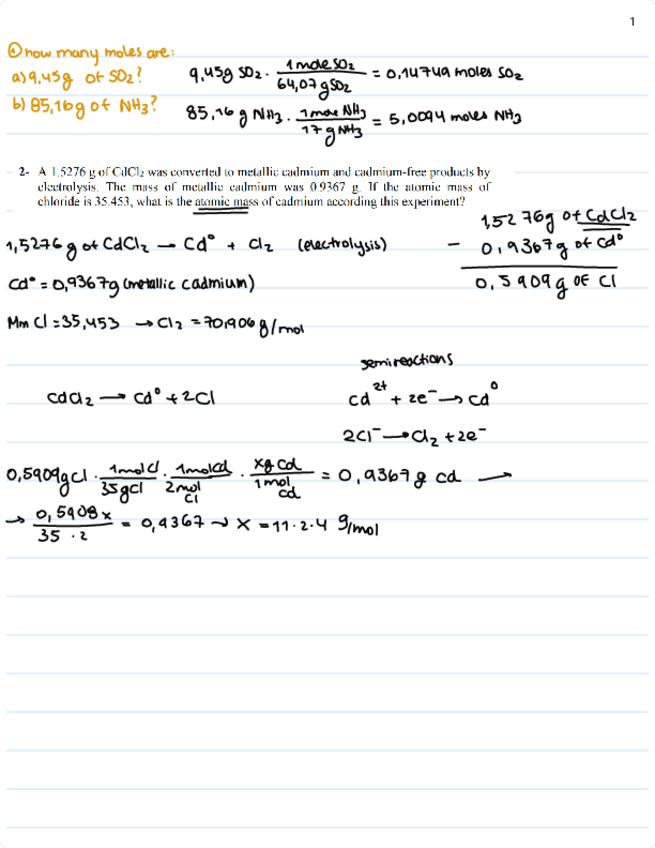 1
① how many moles are:
a) 9,45g of SO2?
9,45g SO2 · 1 mole SO2 / 64,07 g SO2 = 0,14749 moles SO2
b) 85,16g of NH3?
85,16 g NH3 · 1 mole NH3 / 17 g NH3 = 5,0094 moles NH3
2- A 1.5276 g of CdCl2 was converted to metallic cadmium and cadmium-free products by
electrolysis. The mass of metallic cadmium was 0.9367 g. If the atomic mass of
chloride is 35.453, what is the atomic mass of cadmium according this experiment?
1,5276g of CdCl2
1,5276 g of CdCl2 → Cd° + Cl2 (electrolysis)
- 0,9367g of Cd°
Cd° = 0,9367g (metallic cadmium)
0,5909g OF Cl
Mm Cl = 35,453 → Cl2 = 70,906 g/mol
semireactions
CdCl2 → Cd° + 2Cl
Cd2+ + 2e- → Cd0
2Cl- → Cl2 + 2e-
0,5909g Cl · 1mol Cl / 35g Cl · 1mol Cd / 2mol Cl · xg Cd / 1mol Cd = 0,9367 g Cd →
→ 0,5908 x / 35 · 2 = 0,9367 → x = 11·2·4 g/mol